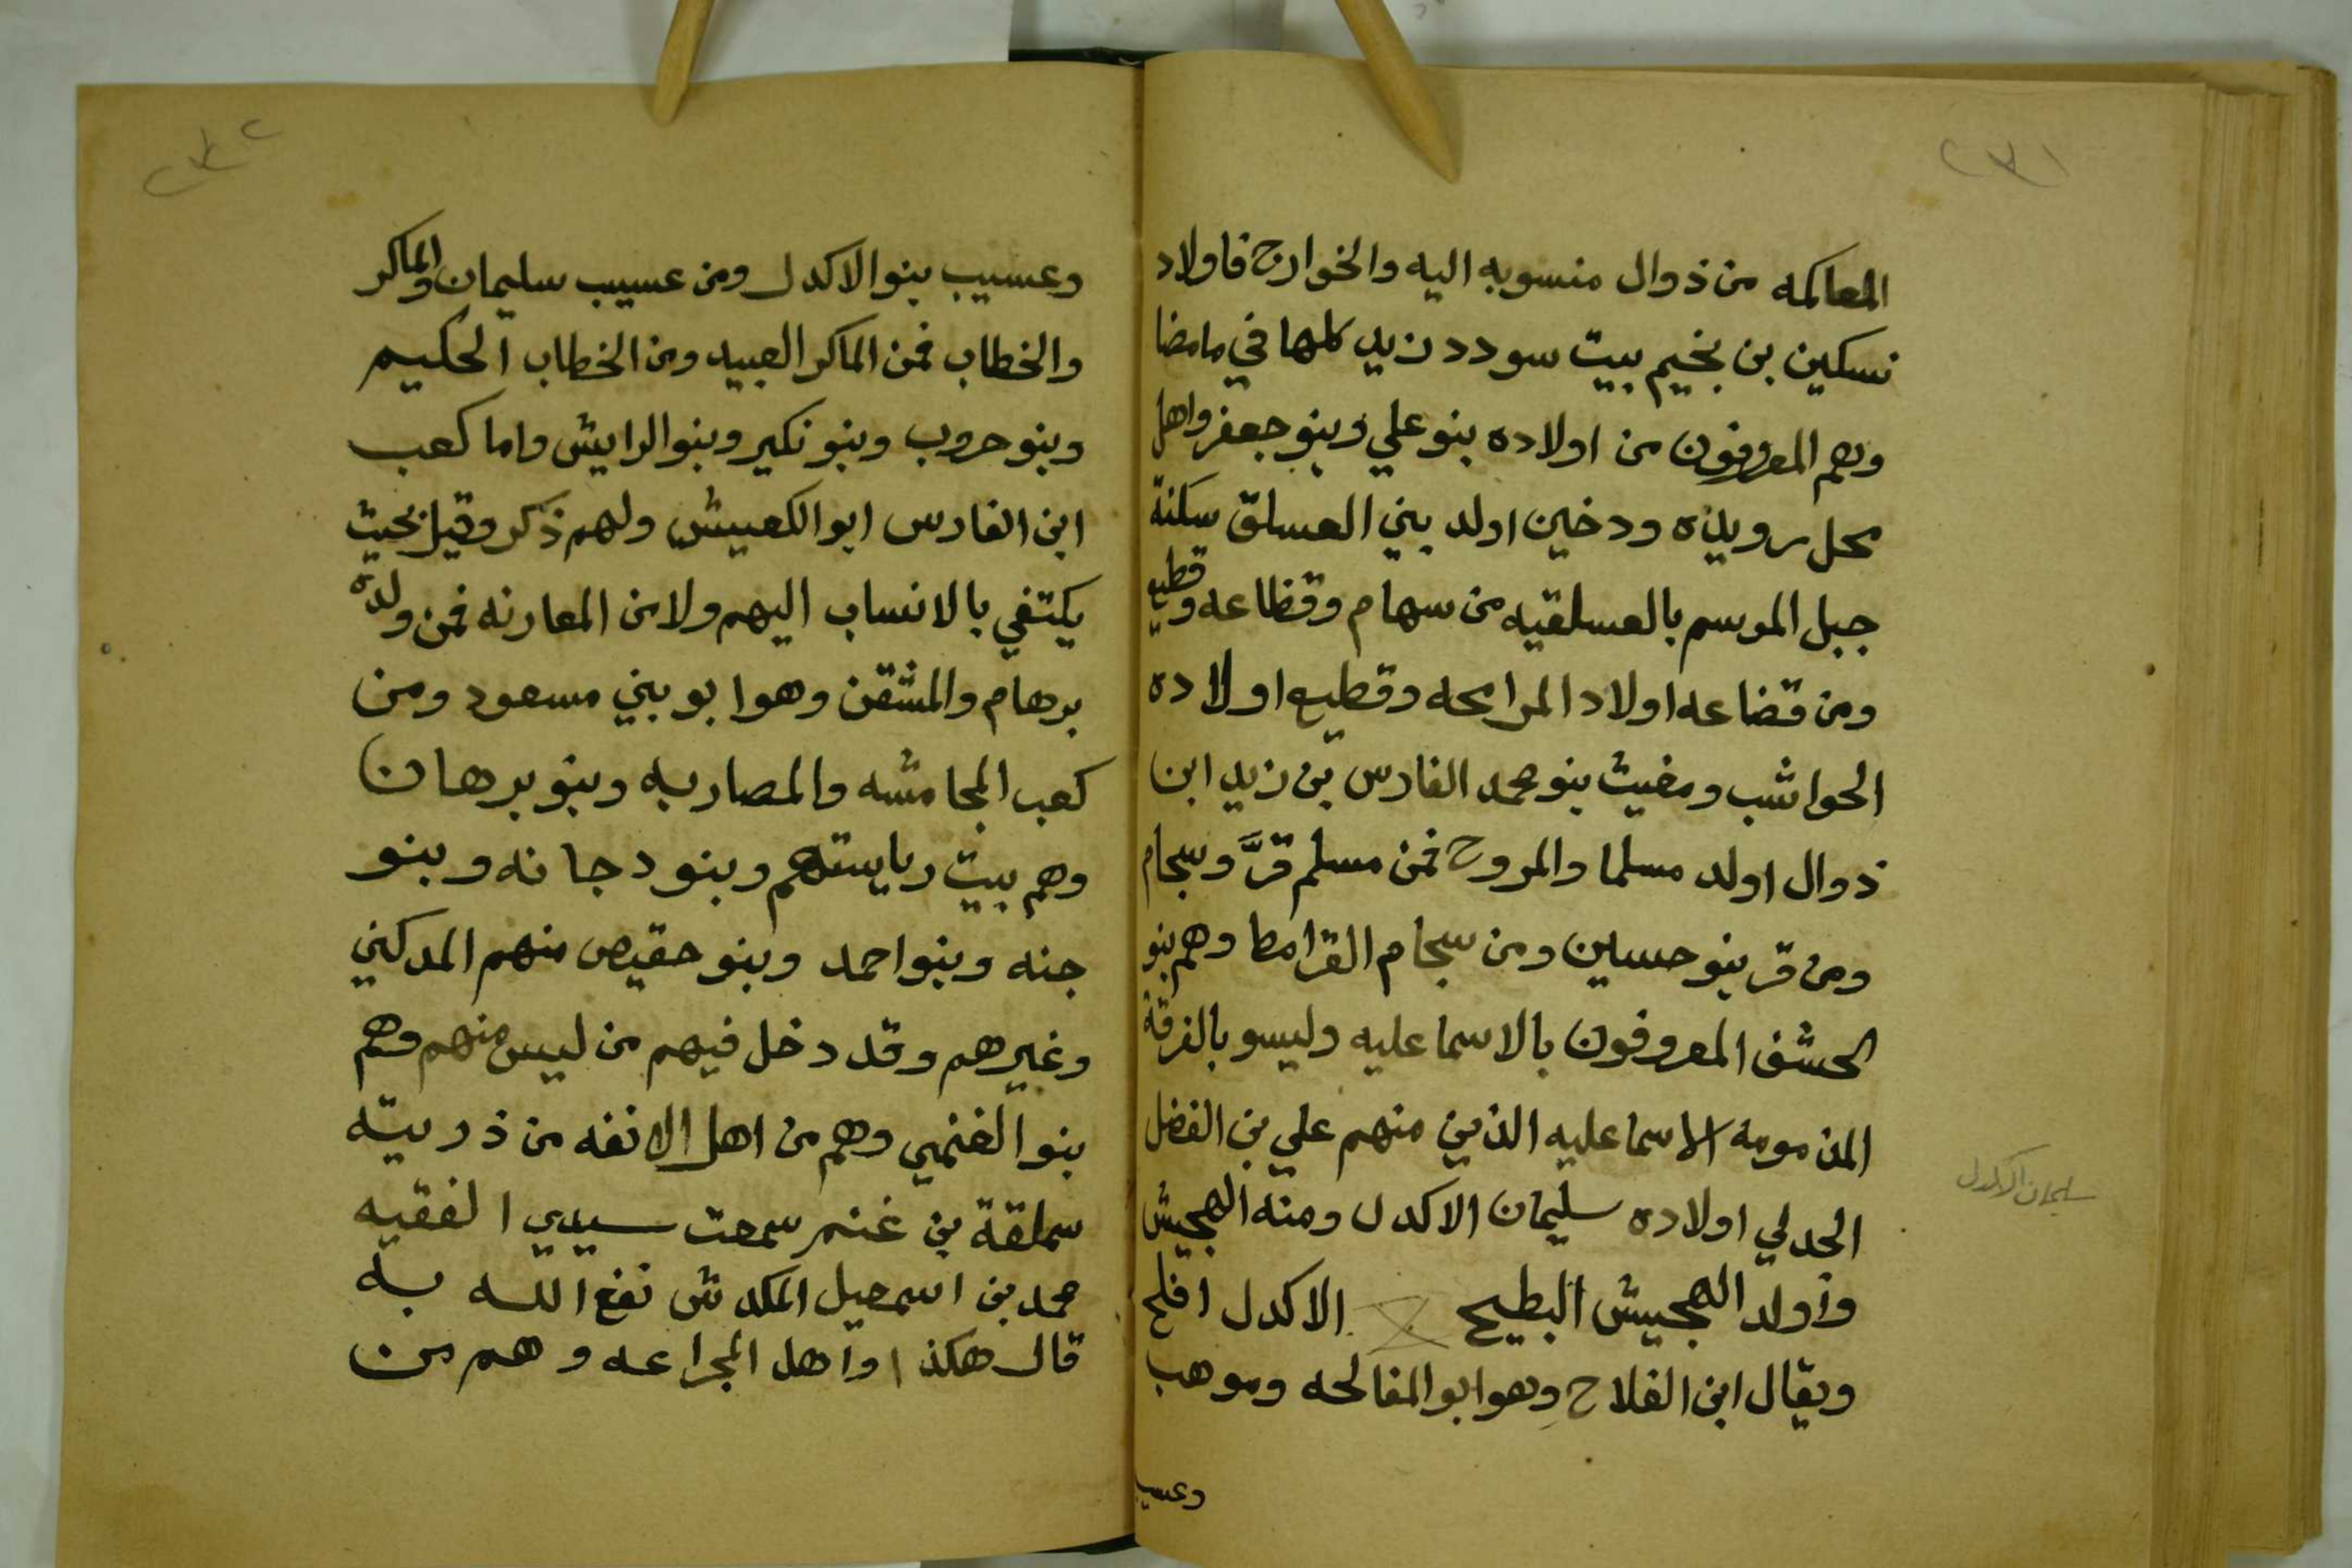 ٢٣١
المعاكمه من ذوال منسوبه اليه والخوارج فاولاد
نسكين بن نخيم بيت سودد زيد كلها في مامضا
وهم المعروفون من اولاده بنو علي وبنو جعفر واهل
محل رويده ودخين اولد بني العسلق سكنة
جبل الموسم بالعسلقيه من سهام وقظاعه وقطيع
ومن قضاعه اولاد المرامحه وقطيع اولاده
الحواشب ومغيث بنو محمد الفارس بن زيد ابن
ذوال اولد مسلما والمروح فمن مسلم قرَّ وسجام
ومن قر بنو حسين ومن سجام القرامط وهم بنو
الحشف المعروفون بالاسماعليه وليسو بالفرقة
المذمومه الاسماعليه الذين منهم علي بن الفضل
الجدلي اولاده سليمان الاكدل ومنه الهجيش
واولد الهجيش البطيح الاكدل افلح
ويقال ابن الفلاح وهو ابو المفالحه وموهب
وعسيب
سليمان الاكدل
٢٣٢
وعسيب بنو الاكدل ومن عسيب سليمان والماكر
والخطاب فمن الماكر العبيد ومن الخطاب الحكيم
وبنو حروب وبنو نكير وبنو الرايش واما كعب
ابن الفارس ابو الكعبيش ولهم ذكر وقيل بحيث
يكتفي بالانساب اليهم ولا من المعارنه فمن ولده
برهام والمشقن وهو ابو بني مسعود ومن
كعب المجامشه والمصاربه وبنو برهان
وهم بيت رياستهم وبنو دجانه وبنو
جنه وبنو احمد وبنو حقيص منهم المدكني
وغيرهم وقد دخل فيهم من ليس منهم وهم
بنو الغنمي وهم من اهل الانفه من ذريته
سملقة بن غنم سمعت سيدي الفقيه
محمد بن اسمعيل المكدش نفع الله به
قال هكذا واهل المجراعه وهم من